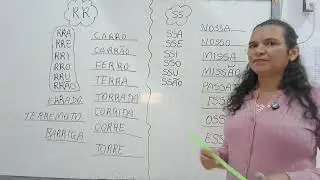 RR
RRA
RRE
RRI
RRO
RRU
RRÃO
ERRADO
TERREMOTO
BARRIGA
CARRO
CARRÃO
FERRO
TERRA
TORRADA
CORRIDA
CORRE
TORRE
SS
SSA
SSE
SSI
SSO
SSU
SSÃO
NOSSA
NOSSO
MISSA
MISSÃO
PASSA